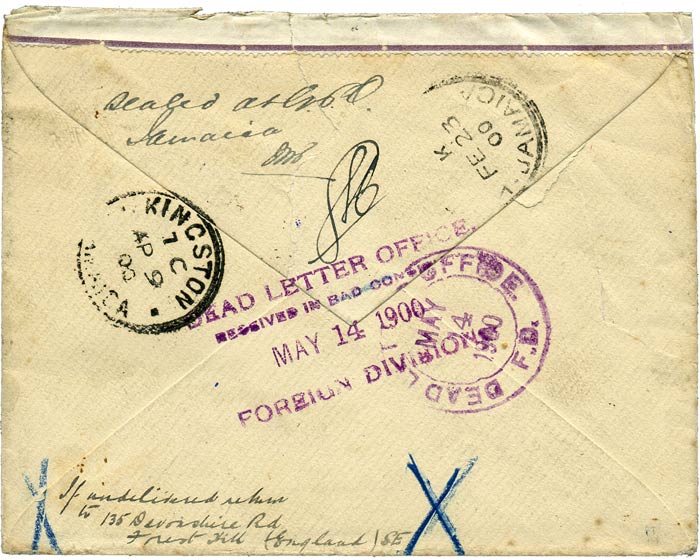 Sealed at G.P.O.
Jamaica
JAMAICA
K
FE 23
00
KINGSTON
7 C
AP 9
00
JAMAICA
DEAD LETTER OFFICE.
RECEIVED IN BAD CON
MAY 14 1900
FOREIGN DIVISION
DEAD L OFFICE. F.D.
MAY
14
1900
If undelivered return
to 135 Devonshire Rd
Forest Hill (England) SE